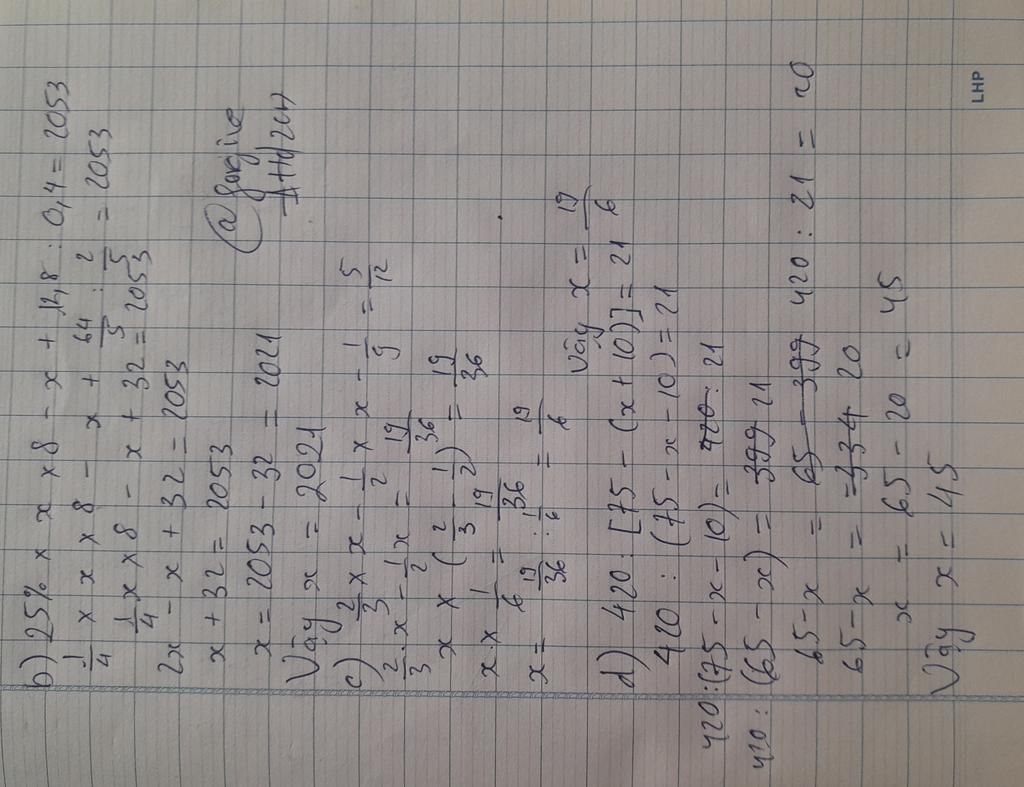 b) 25% × x × 8 - x + 12,8 : 0,4 = 2053
1/4 × x × 8 - x + 64/5 : 2/5 = 2053
1/4 x × 8 - x + 32 = 2053
2x - x + 32 = 2053
x + 32 = 2053
x = 2053 - 32 = 2021
Vậy x = 2021
c) 2/3 × x - 1/2 × x - 1/9 = 5/12
2/3 . x - 1/2 x = 19/36
x × (2/3 - 1/2) = 19/36
x . x 1/6 = 19/36
x = 19/36 : 1/6 = 19/6
Vậy x = 19/6
d) 420 : [75 - (x + 10)] = 21
420 : (75 - x - 10) = 21
420 : (75 - x - 10) = 420 : 21
420 : (65 - x) = 399 21
65 - x = 65 - 399 420 : 21 = 20
65 - x = 334 20
x = 65 - 20 = 45
Vậy x = 45
LHP